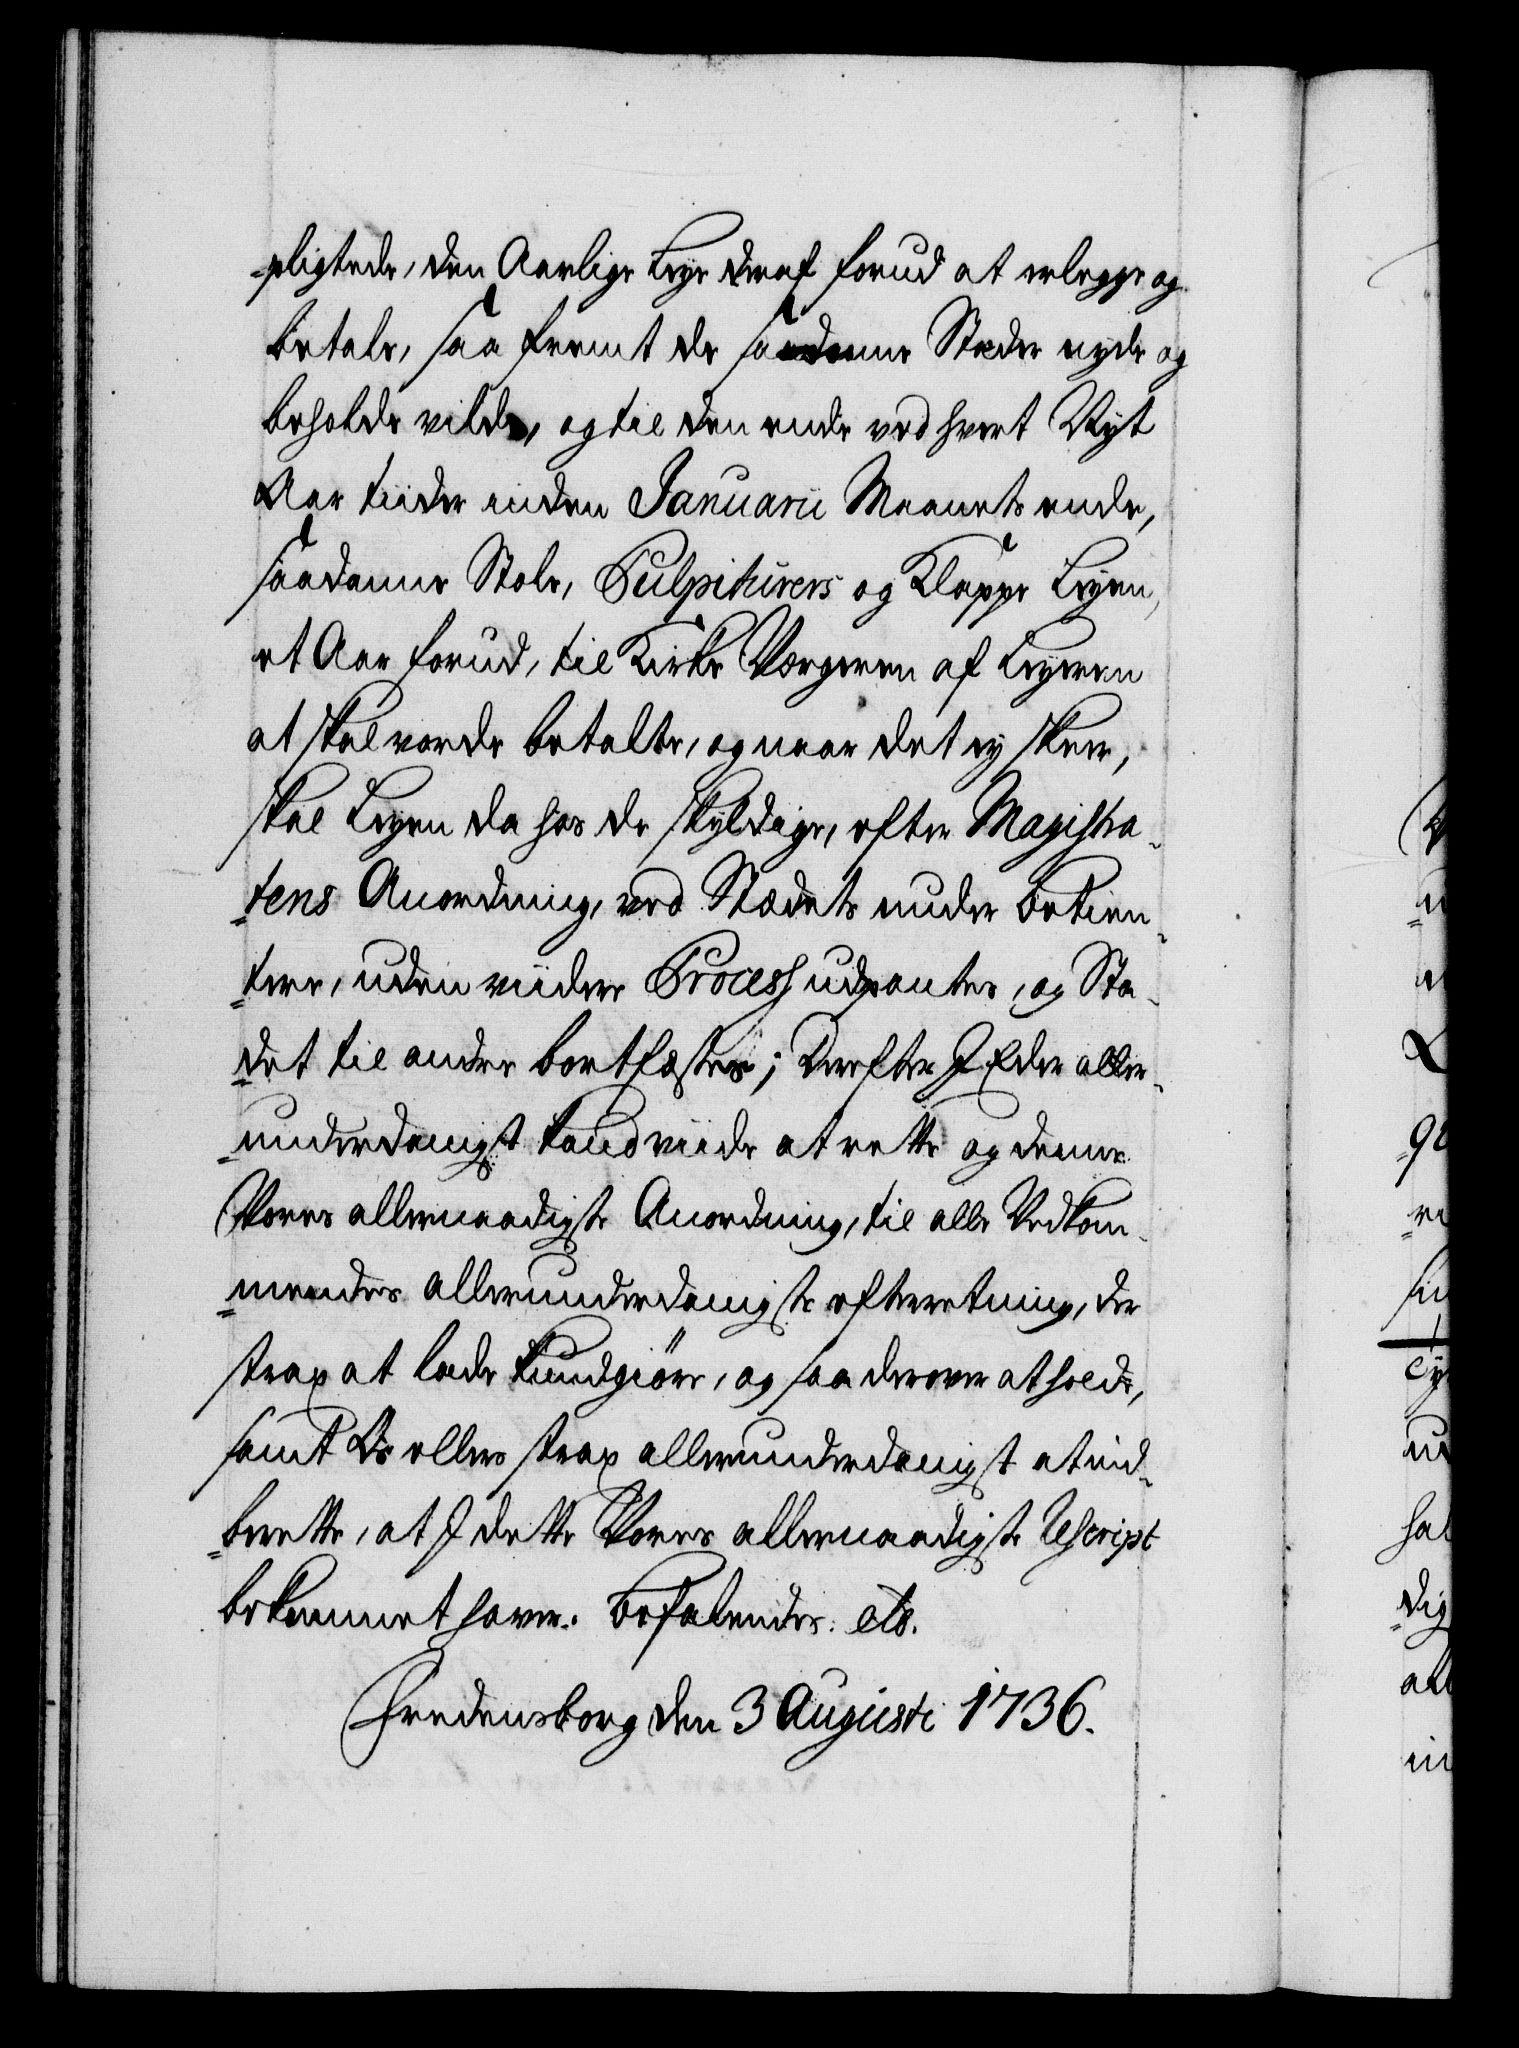 pligtede, den Aarlige Leye deraf forud at erlegge og
betale, saa fremt de saadanne Stæder nyde og
beholde vilde, og til den ende ved hvert Nyt
Aar tiider inden Januarii Maanets ende,
saadanne Stole, Pulpiturers og Klappe Leyen,
et Aar forud, til Kirke Værgeren af Leyeren
at skal vorde betalte, og naar det ey skeer,
skal Leyen da hos de skyldige, efter Magistra-
tens Anordning, ved Stædets under betien-
tere, uden viidere Process udpantes, og Stæ-
det til andre bortfæstes; Derefter I Eder aller-
underdanigst taus viide at rette og denne
Vores allernaadigste Anordning, til alle Vedkom-
mendes allerunderdanigste efterretning, der
strax at lade kundgiøre, og saa derover at holde,
samt Os ellers strax allerunderdanigst at ind-
berette, at I dette Vores allernaadigste Rescript
bekommet haver. Befalendes. etc.
Fredensborg den 3 Augusti 1736.